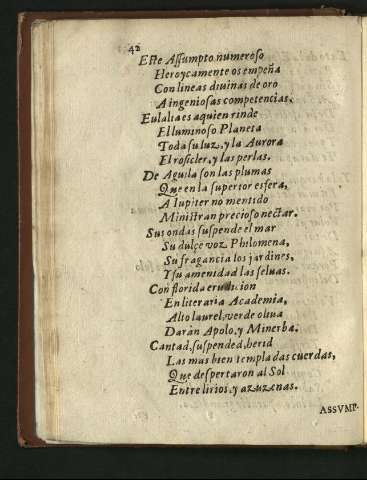 42
Este Assumpto numeroso
Heroycamente os empeña
Con lineas diuinas de oro
A ingeniosas competencias.
Eulalia es a quien rinde
El luminoso Planeta
Toda su luz, y la Aurora
El rosicler, y las perlas.
De Aguila son las plumas
Que en la superior esfera,
A Iupiter no mentido
Ministran precioso nectar.
Sus ondas suspende el mar
Su dulce voz Philomena,
Su fragancia los jardines,
Y su amenidad las seluas.
Con florida erudicion
En literaria Academia,
Alto laurel, verde oliua
Darán Apolo, y Minerba.
Cantad, suspended, herid
Las mas bien templadas cuerdas,
Que despertaron al Sol
Entre lirios, y azuzenas.
ASSVMP-